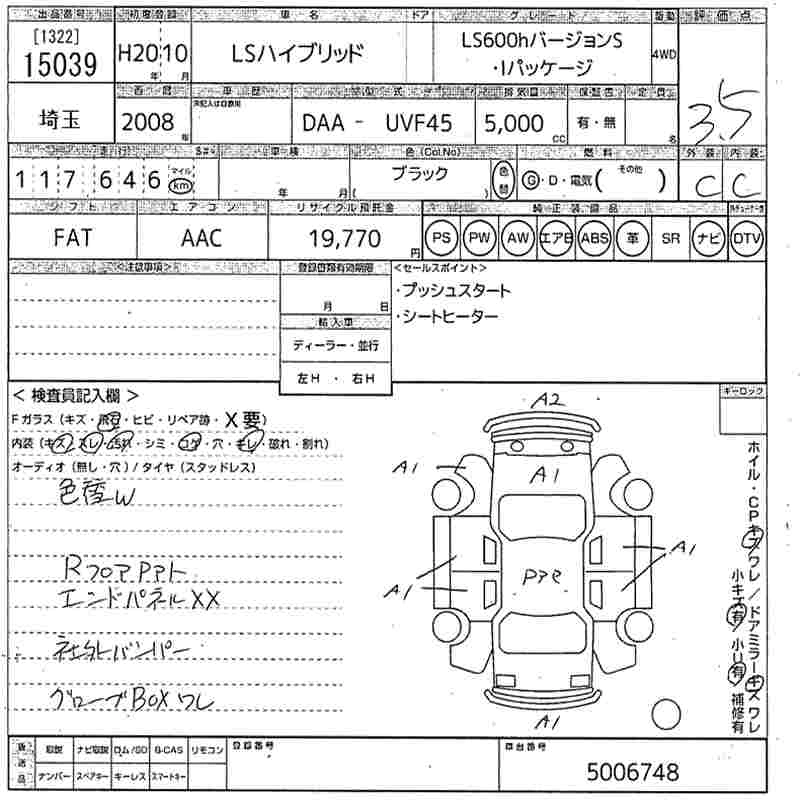 出品番号 初度登録 車名 ドア グレード 駆動 評価点
[1322]
15039 H20 10 年 月 LSハイブリッド LS600hバージョンS 4WD 3.5
・Iパッケージ
西暦 車歴 型式 排気量 保証書 定員
未記入は自家用
埼玉 2008 年 DAA - UVF45 5,000 cc 有・無 名
走行 車検 色(Col.No) 燃料 外装 内装
117,646 マイル km 年 月 ブラック ( ) 色替 G・D・電気( その他 ) C C
シフト エアコン リサイクル預託金 純正装備品
FAT AAC 19,770 円 PS PW AW エアB ABS 革 SR ナビ DTV
<注意事項> 登録書類有効期限 <セールスポイント>
月 日 ・プッシュスタート
輸入車 ・シートヒーター
ディーラー・並行
左H ・ 右H
< 検査員記入欄 > キーロック
Fガラス (キズ・飛石・ヒビ・リペア跡・X要)
内装 (キズ・スレ・汚れ・シミ・コゲ・穴・キレ・破れ・割れ)
オーディオ (無し・穴) / タイヤ (スタッドレス)
色替W
RフロアPアト
エンドパネルXX
社外バンパー
グローブBOXワレ
A2
A1
A1
A1
A1
A1
ホイル・CPキズワレ/ドアミラーキズワレ
小キズ有/小U有/補修有
販送品 取説 ナビ取説 ロム/SD B-CAS リモコン 登録番号 車台番号
ナンバー スペアキー キーレス スマートキー 5006748